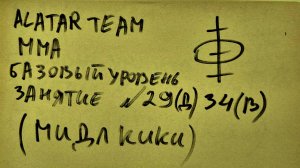 ALATAR TEAM
MMA
БАЗОВЫЙ УРОВЕНЬ
ЗАНЯТИЕ №29(Д) 34(В)
(МИДЛ КИКИ)